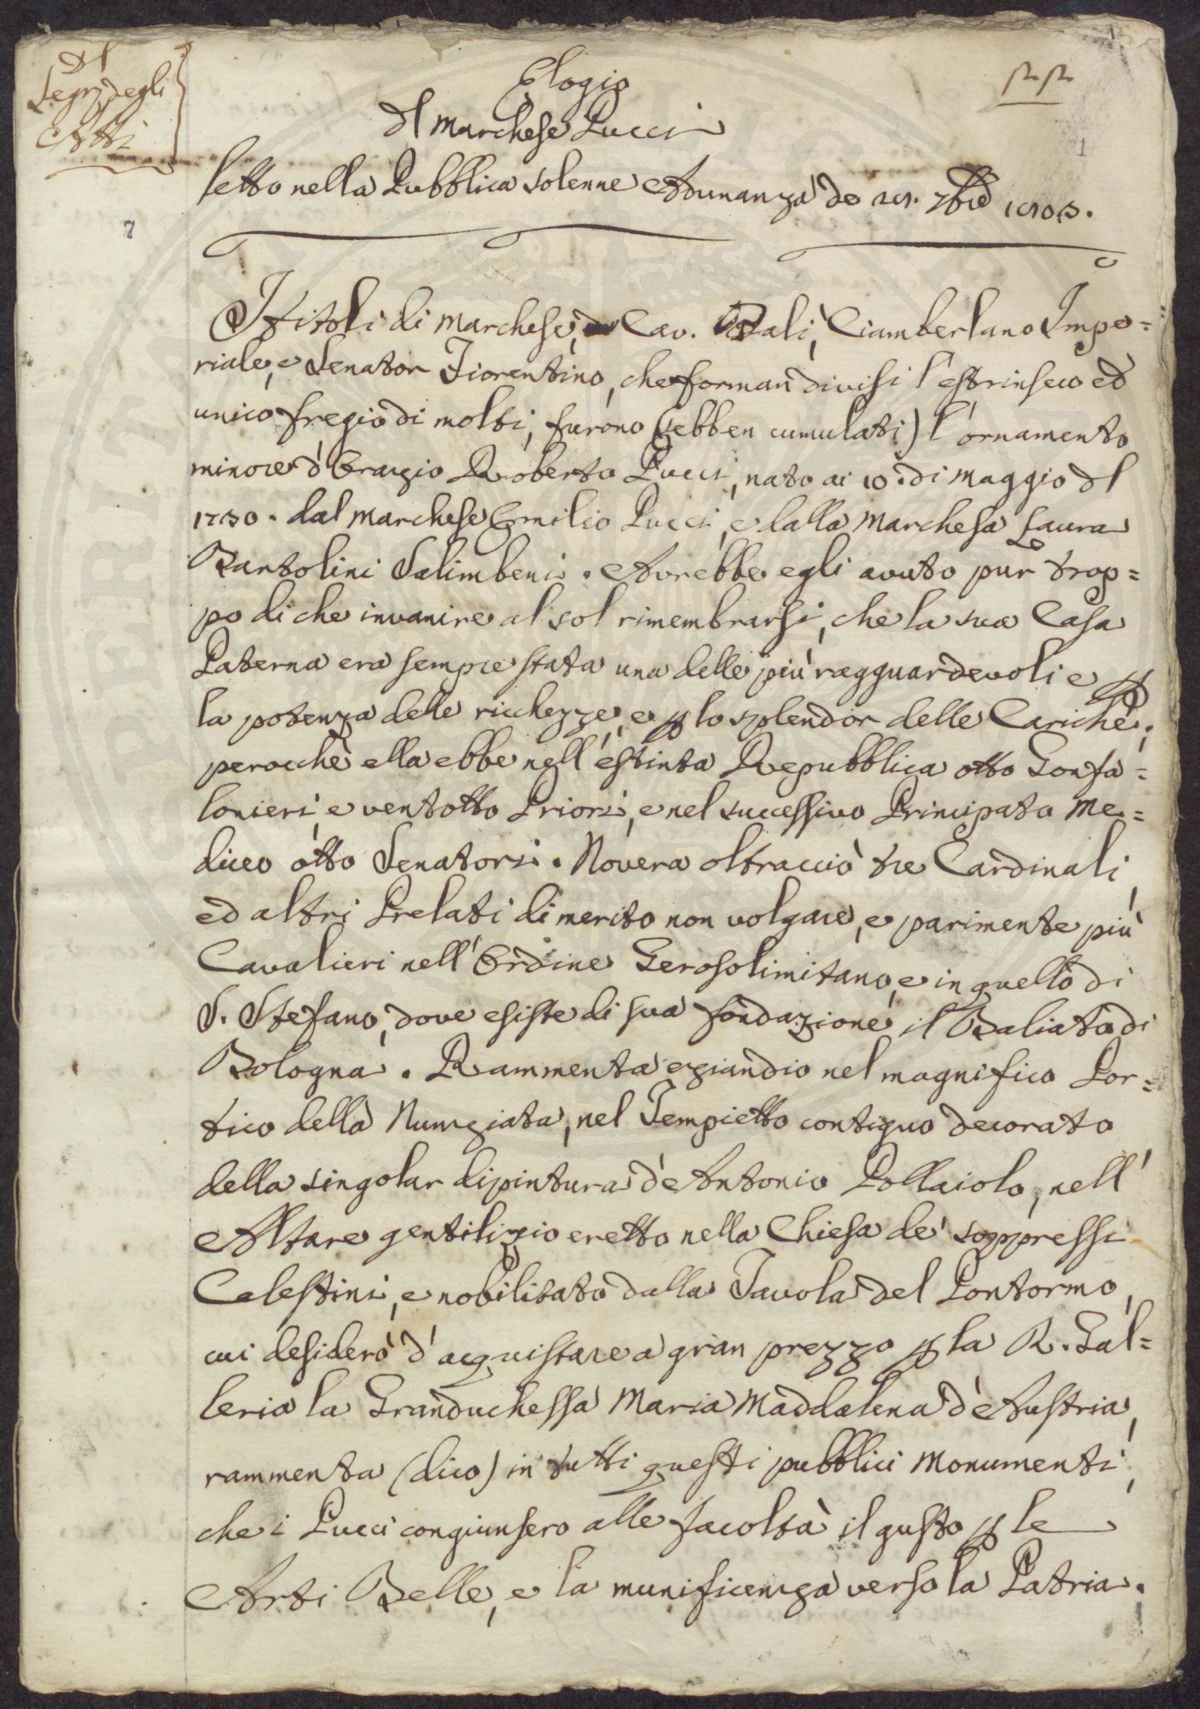 Del
Segr. degli
Atti
Elogio
Dl Marchese Pucci
letto nella Pubblica solenne Adunanza de 7bre
7
1
I titoli di Marchese, Cav. Balì, Ciamberlano Impe=
riale, e Senator Fiorentino, che forman divisi l'estrinseco ed
unico fregio di molti, furono (sebben cumulati) l'ornamento
minore d'Orazio Roberto Pucci, nato ai 10. di Maggio dl
1730. dal Marchese Emilio Pucci, e dalla Marchesa Laura
Bartolini Salimbeni. Avrebbe egli avuto pur trop=
po di che invanire al sol rimembrarsi, che la sua Casa
Paterna era sempre stata una delle più ragguardevoli e p
la potenza delle ricchezze, e p lo splendor delle Cariche;
perocchè ella ebbe nell'estinta Repubblica otto Gonfa=
lonieri, e ventotto Priori, e nel successivo Principato Me=
diceo otto Senatori. Novera oltracciò tre Cardinali,
ed altri Prelati di merito non volgare, e parimente più
Cavalieri nell'Ordine Gerosolimitano, e in quello di
S. Stefano, dove esiste di sua fondazione il Baliato di
Bologna. Rammenta eziandio nel magnifico Por=
tico della Nunziata, nel Tempietto contiguo decorato
della singolar dipintura d'Antonio Pollaiolo, nell'
Altare gentilizio eretto nella Chiesa de' soppressi
Celestini, e nobilitato dalla Tavola del Pontormo,
cui desiderò d'acquistare a gran prezzo p la R. Gal=
leria la Granduchessa Maria Maddalena d'Austria,
rammenta (dico) in tutti questi pubblici Monumenti,
che i Pucci congiunsero alle facoltà il gusto p le
Arti Belle, e la munificenza verso la Patria.